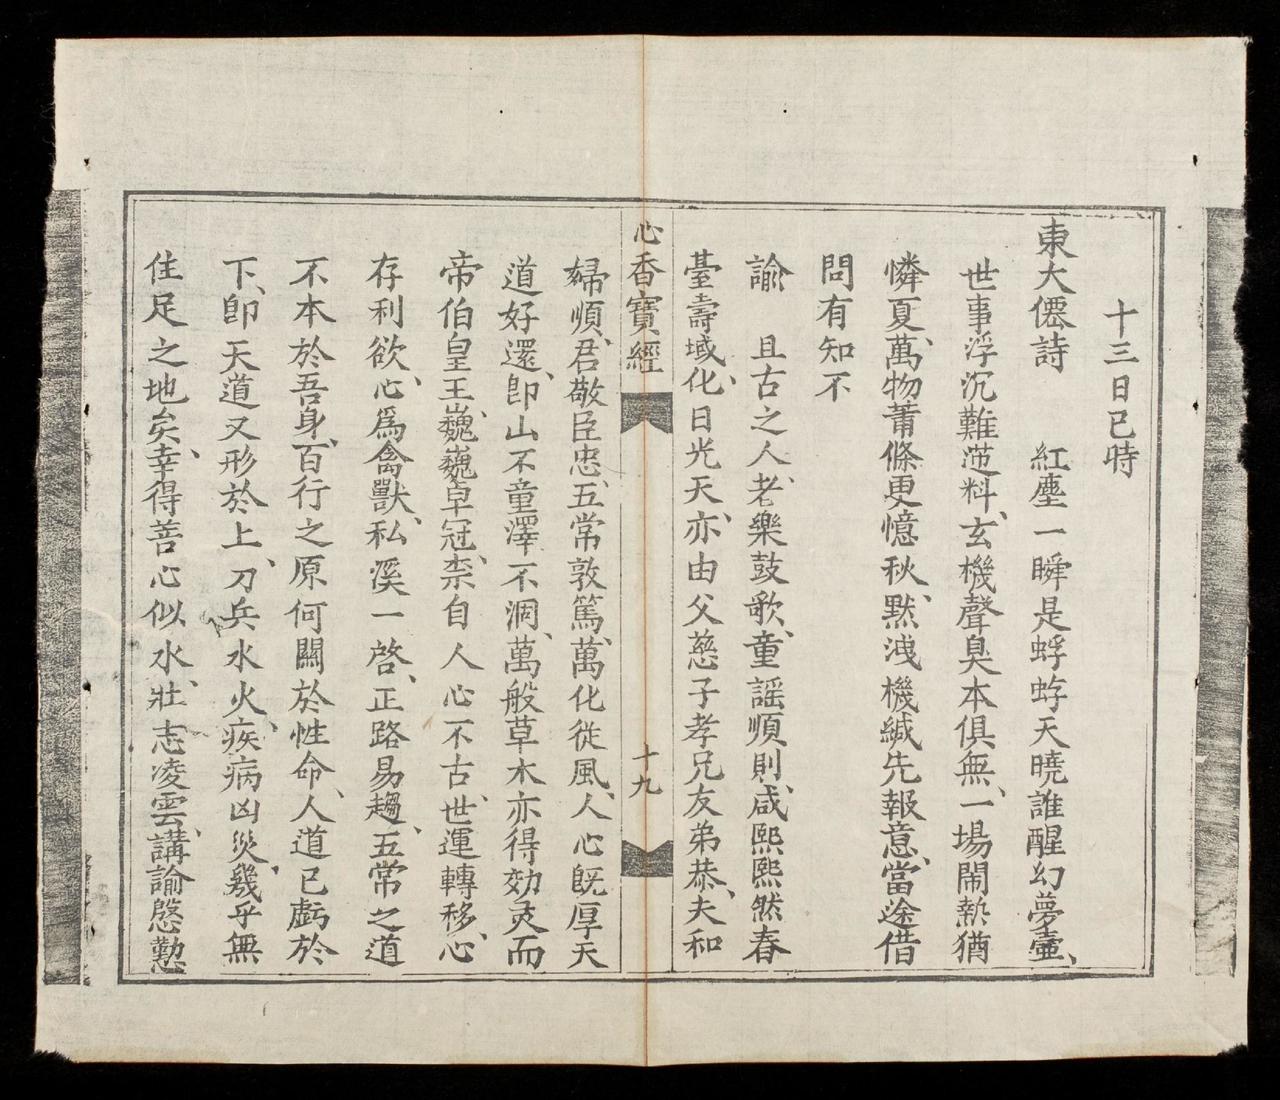 十三日巳時
東大僊詩　紅塵一瞬是蜉蝣天曉誰醒幻夢壷、
世事浮沉難逆料、玄機聲臭本俱無、一場閙熱猶
憐夏、萬物莆條更憶秋、黙洩機緘先報意、當途借
問有知不
諭　且古之人、老樂鼓歌、童謡順則、咸熙熙然春
臺壽域、化日光天、亦由父慈子孝兄友弟恭、夫和
心香寶經　十九
婦順、君敬臣忠、五常敦篤、萬化從風、人心既厚天
道好還、即山不童澤不涸、萬般草木亦得効灵而
帝伯皇王、巍巍卓冠、柰自人心不古、世運轉移、心
存利欲、心爲禽獸、私溪一啓、正路易趨、五常之道
不本於吾身、百行之原何關於性命、人道已虧於
下、即天道又形於上、刀兵水火、疾病凶災、幾乎無
住足之地矣、幸得善心似水、壯志凌雲、講諭慇懃